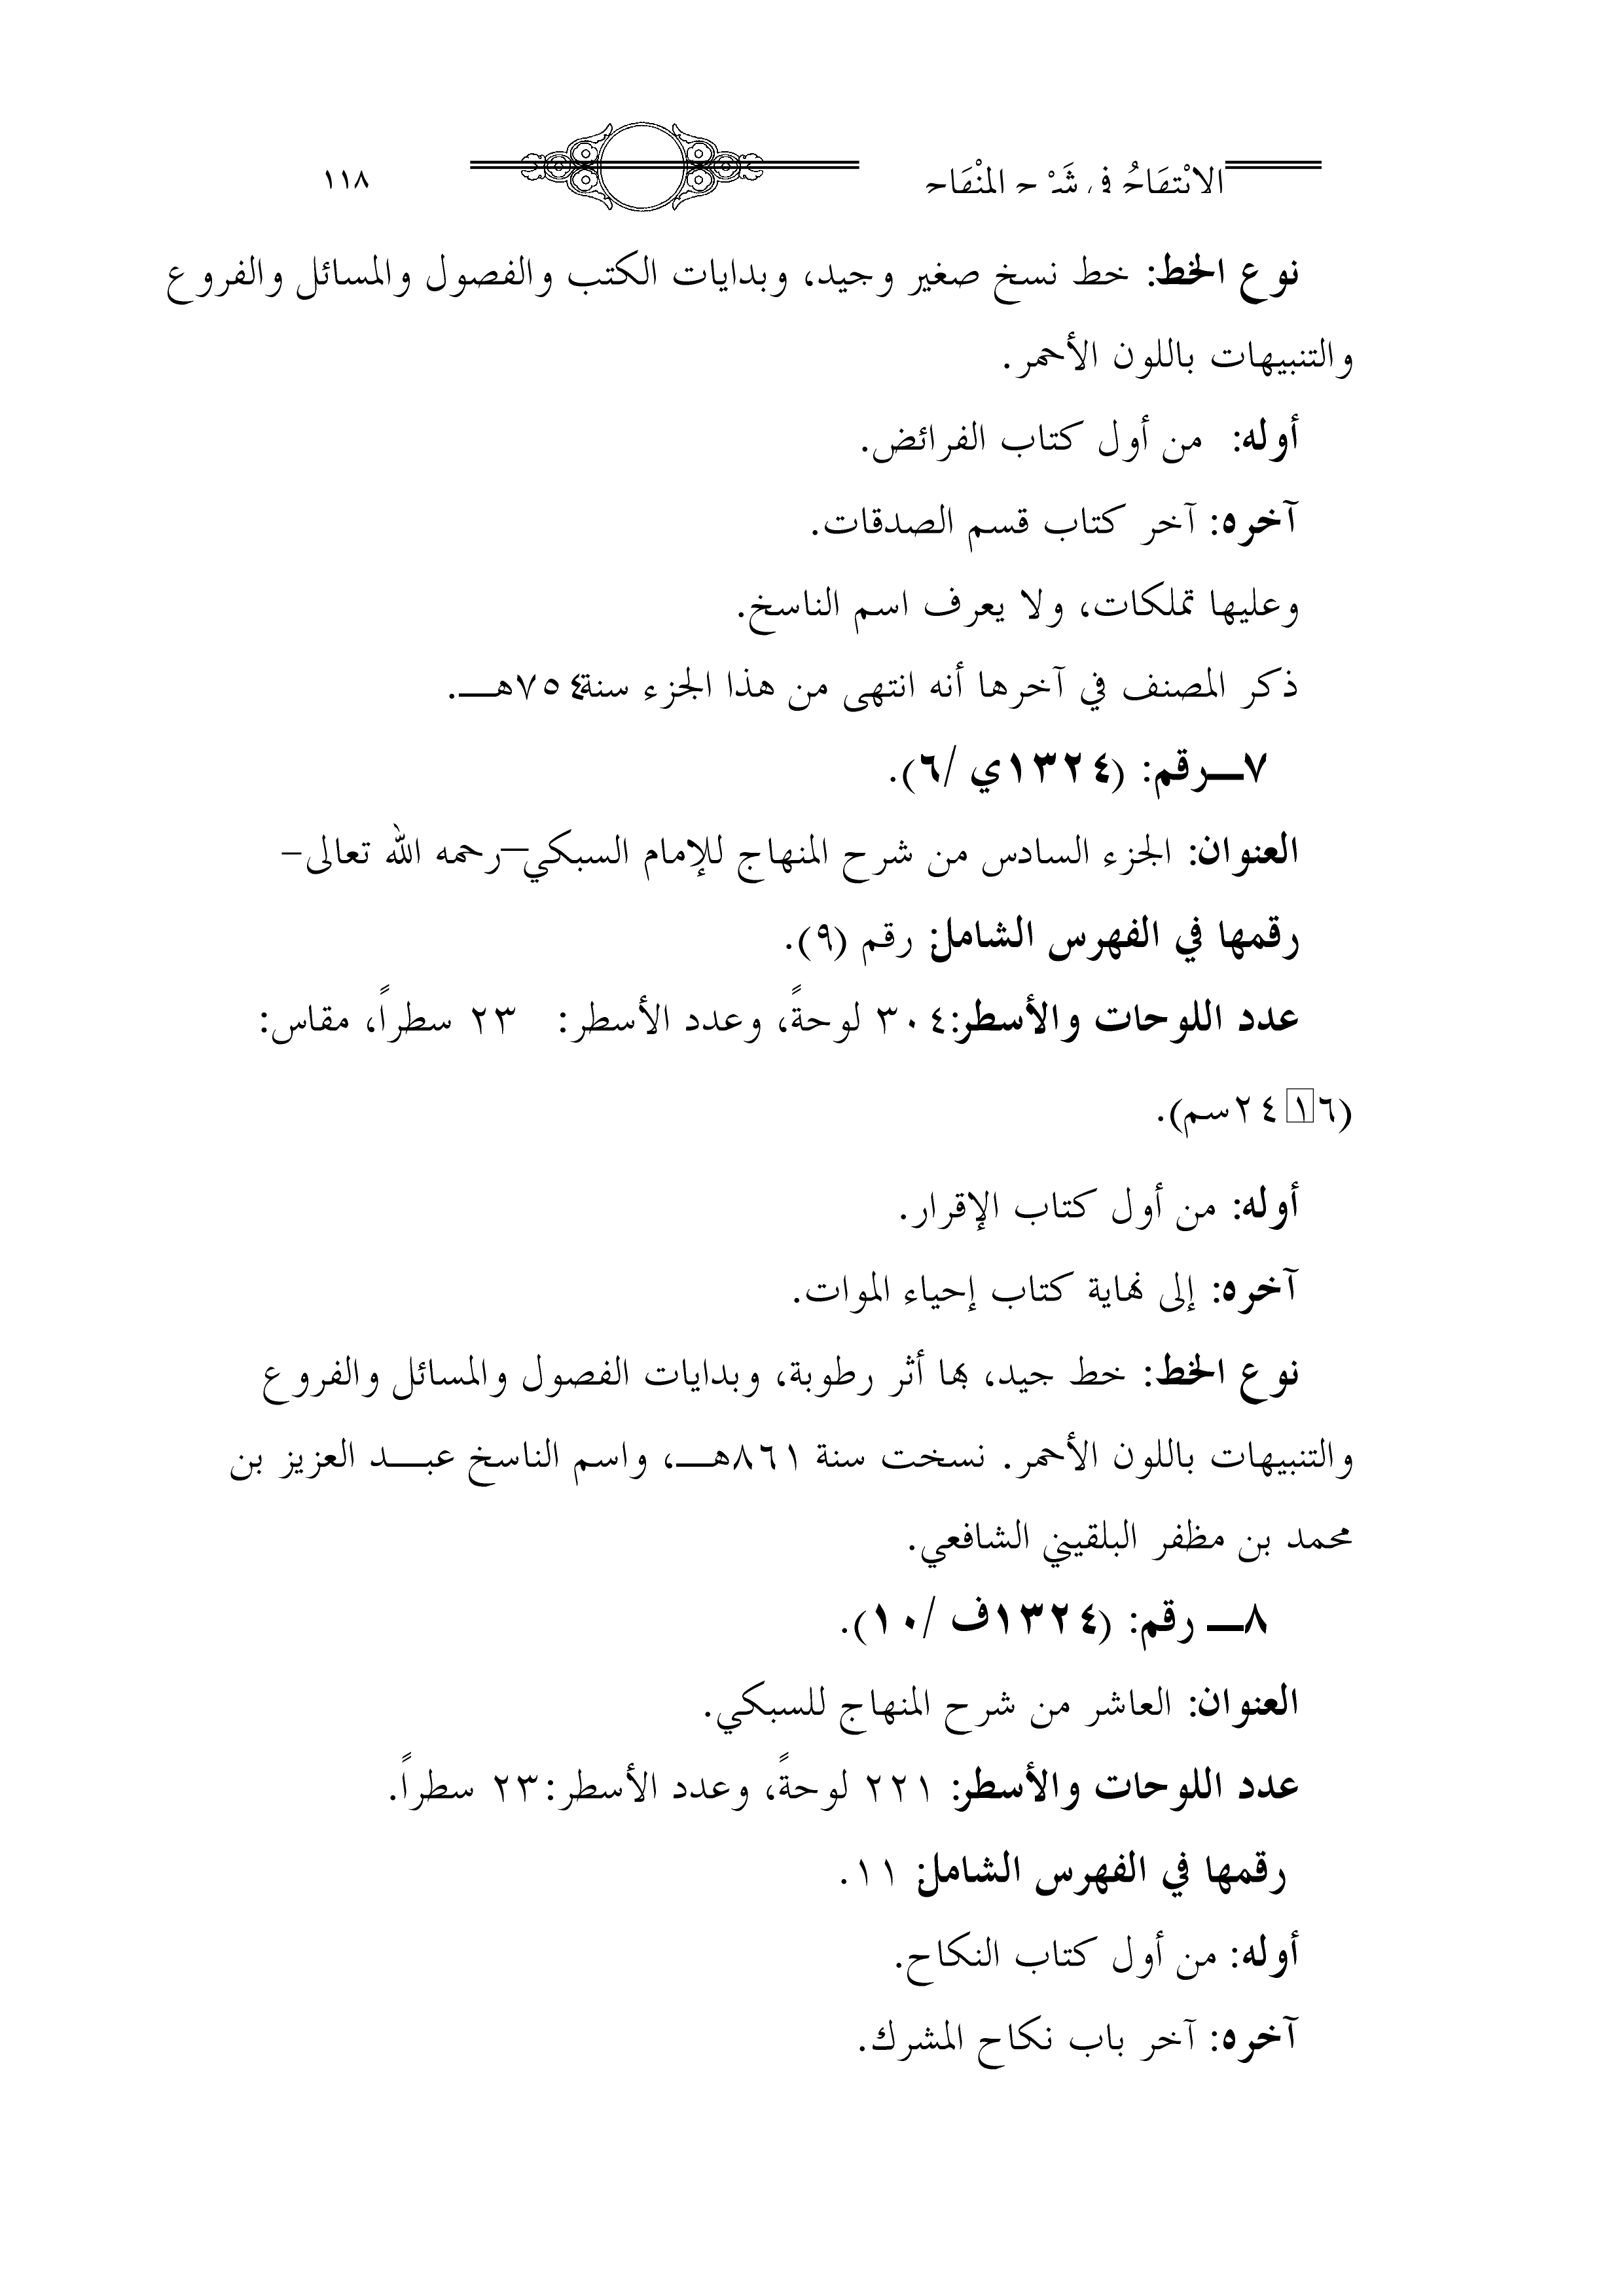 الابْتِهَاجُ في شَرْحِ المِنْهَاجِ ١١٨
نوع الخط: خط نسخ صغير وجيد، وبدايات الكتب والفصول والمسائل والفروع
والتنبيهات باللون الأحمر.
أوله: من أول كتاب الفرائض.
آخره: آخر كتاب قسم الصدقات.
وعليها تملكات، ولا يعرف اسم الناسخ.
ذكر المصنف في آخرها أنه انتهى من هذا الجزء سنة٧٥٤هـ.
٧ـرقم: (١٣٢٤ي /٦).
العنوان: الجزء السادس من شرح المنهاج للإمام السبكي–رحمه الله تعالى-
رقمها في الفهرس الشامل: رقم (٩).
عدد اللوحات والأسطر:٣٠٤ لوحةً، وعدد الأسطر: ٢٣ سطراً، مقاس:
(١٦ ٢٤سم).
أوله: من أول كتاب الإقرار.
آخره: إلى نهاية كتاب إحياء الموات.
نوع الخط: خط جيد، بها أثر رطوبة، وبدايات الفصول والمسائل والفروع
والتنبيهات باللون الأحمر. نسخت سنة ٨٦١هـ، واسم الناسخ عبـد العزيز بن
محمد بن مظفر البلقيني الشافعي.
٨ـ رقم: (١٣٢٤ف /١٠).
العنوان: العاشر من شرح المنهاج للسبكي.
عدد اللوحات والأسطر: ٢٢١ لوحةً، وعدد الأسطر:٢٣ سطراً.
رقمها في الفهرس الشامل: ١١.
أوله: من أول كتاب النكاح.
آخره: آخر باب نكاح المشرك.